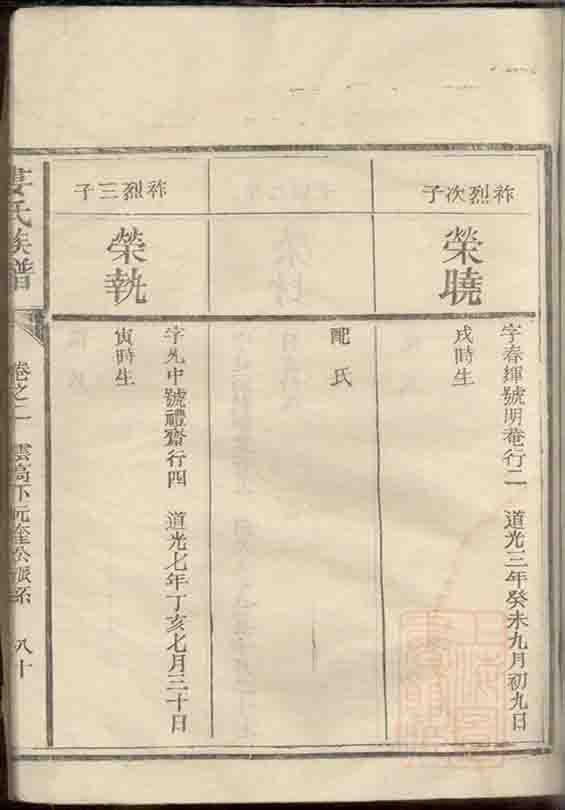 祚烈次子
榮曉
字春輝號明菴行二 道光三年癸未九月初九日
戌時生
配氏
祚烈三子
榮執
字允中號禮齋行四 道光七年丁亥七月三十日
寅時生
姜氏族譜
卷之二 雲高下元奎公派系 八十